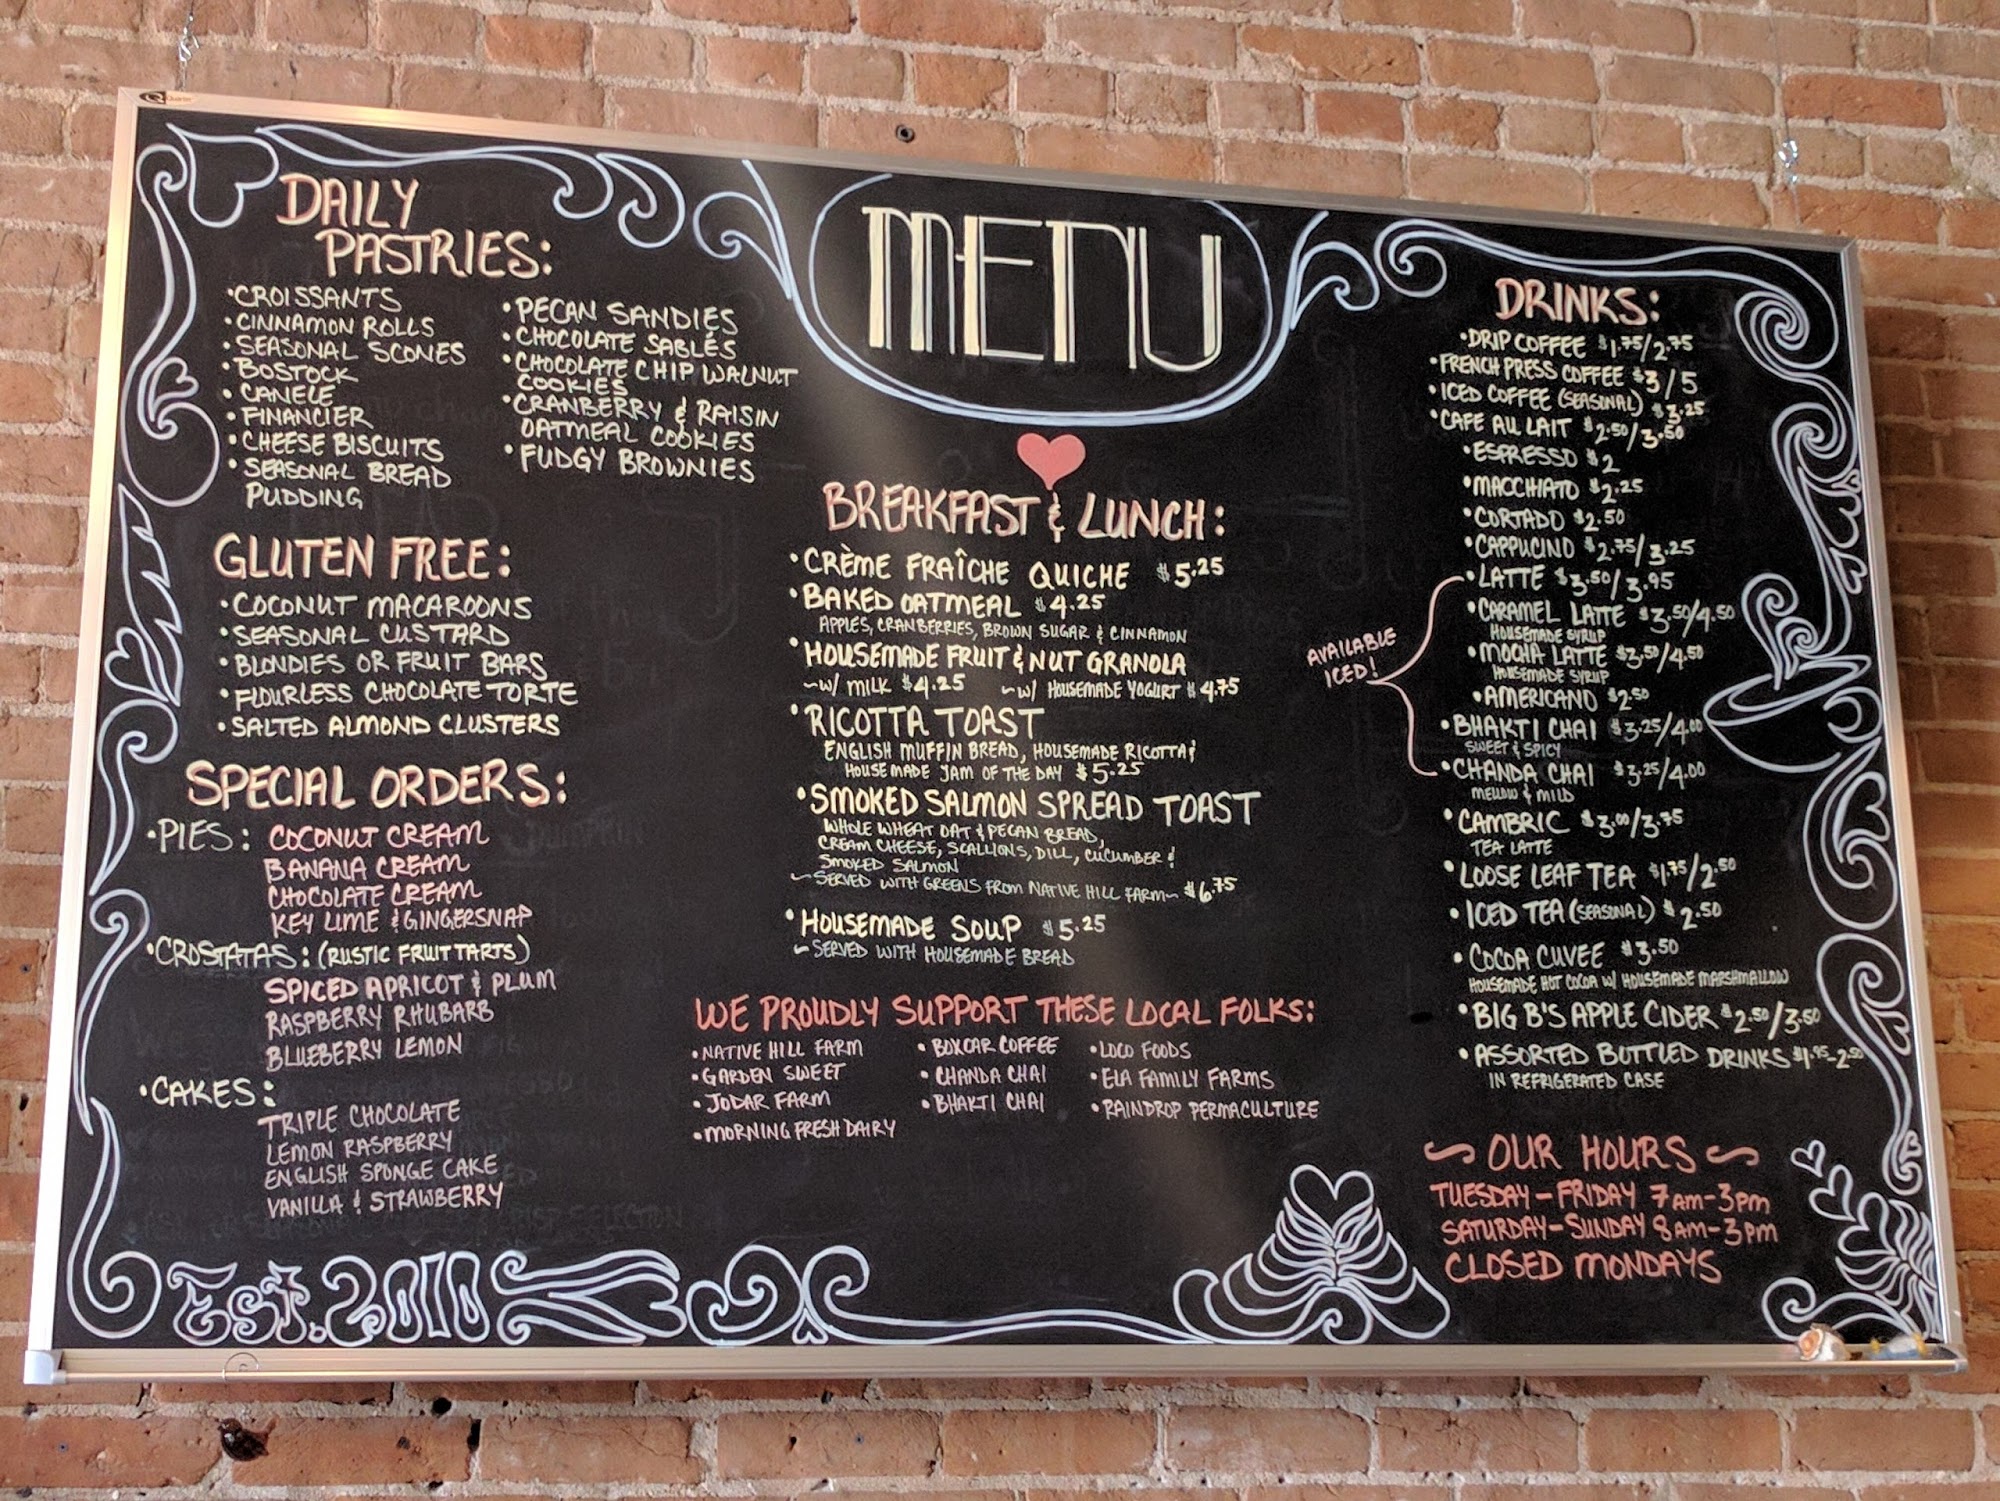 Quartet
MENU
DAILY
PASTRIES:
•CROISSANTS
•CINNAMON ROLLS
•SEASONAL SCONES
•BOSTOCK
•CANELÉ
•FINANCIER
•CHEESE BISCUITS
•SEASONAL BREAD
PUDDING
•PECAN SANDIES
•CHOCOLATE SABLÉS
•CHOCOLATE CHIP WALNUT
COOKIES
•CRANBERRY & RAISIN
OATMEAL COOKIES
•FUDGY BROWNIES
GLUTEN FREE:
•COCONUT MACAROONS
•SEASONAL CUSTARD
•BLONDIES OR FRUIT BARS
•FLOURLESS CHOCOLATE TORTE
•SALTED ALMOND CLUSTERS
SPECIAL ORDERS:
•PIES: COCONUT CREAM
BANANA CREAM
CHOCOLATE CREAM
KEY LIME & GINGERSNAP
•CROSTATAS: (RUSTIC FRUIT TARTS)
SPICED APRICOT & PLUM
RASPBERRY RHUBARB
BLUEBERRY LEMON
•CAKES:
TRIPLE CHOCOLATE
LEMON RASPBERRY
ENGLISH SPONGE CAKE
VANILLA & STRAWBERRY
Est. 2010
BREAKFAST & LUNCH:
•CRÈME FRAÎCHE QUICHE $5.25
•BAKED OATMEAL $4.25
APPLES, CRANBERRIES, BROWN SUGAR & CINNAMON
•HOUSEMADE FRUIT & NUT GRANOLA
~W/ MILK $4.25 ~W/ HOUSEMADE YOGURT $4.75
•RICOTTA TOAST
ENGLISH MUFFIN BREAD, HOUSEMADE RICOTTA &
HOUSEMADE JAM OF THE DAY $5.25
•SMOKED SALMON SPREAD TOAST
WHOLE WHEAT OAT & PECAN BREAD,
CREAM CHEESE, SCALLIONS, DILL, CUCUMBER &
SMOKED SALMON
~SERVED WITH GREENS FROM NATIVE HILL FARM~ $6.75
•HOUSEMADE SOUP $5.25
~SERVED WITH HOUSEMADE BREAD
WE PROUDLY SUPPORT THESE LOCAL FOLKS:
•NATIVE HILL FARM
•GARDEN SWEET
•JODAR FARM
•MORNING FRESH DAIRY
•BOXCAR COFFEE
•CHANDA CHAI
•BHAKTI CHAI
•LOCO FOODS
•ELA FAMILY FARMS
•RAINDROP PERMACULTURE
DRINKS:
•DRIP COFFEE $1.75/2.75
•FRENCH PRESS COFFEE $3/5
•ICED COFFEE (SEASONAL) $3.25
•CAFE AU LAIT $2.50/3.50
•ESPRESSO $2
•MACCHIATO $2.25
•CORTADO $2.50
•CAPPUCINO $2.75/3.25
•LATTE $3.50/3.95
•CARAMEL LATTE $3.50/4.50
HOUSEMADE SYRUP
•MOCHA LATTE $3.50/4.50
HOUSEMADE SYRUP
•AMERICANO $2.50
•BHAKTI CHAI $3.25/4.00
SWEET & SPICY
•CHANDA CHAI $3.25/4.00
MELLOW & MILD
AVAILABLE
ICED!
•CAMBRIC $3.00/3.75
TEA LATTE
•LOOSE LEAF TEA $1.75/2.50
•ICED TEA (SEASONAL) $2.50
•COCOA CUVEE $3.50
HOUSEMADE HOT COCOA W/ HOUSEMADE MARSHMALLOW
•BIG B'S APPLE CIDER $2.50/3.50
•ASSORTED BOTTLED DRINKS $1.95-2.50
IN REFRIGERATED CASE
~ OUR HOURS ~
TUESDAY-FRIDAY 7AM-3PM
SATURDAY-SUNDAY 8AM-3PM
CLOSED MONDAYS